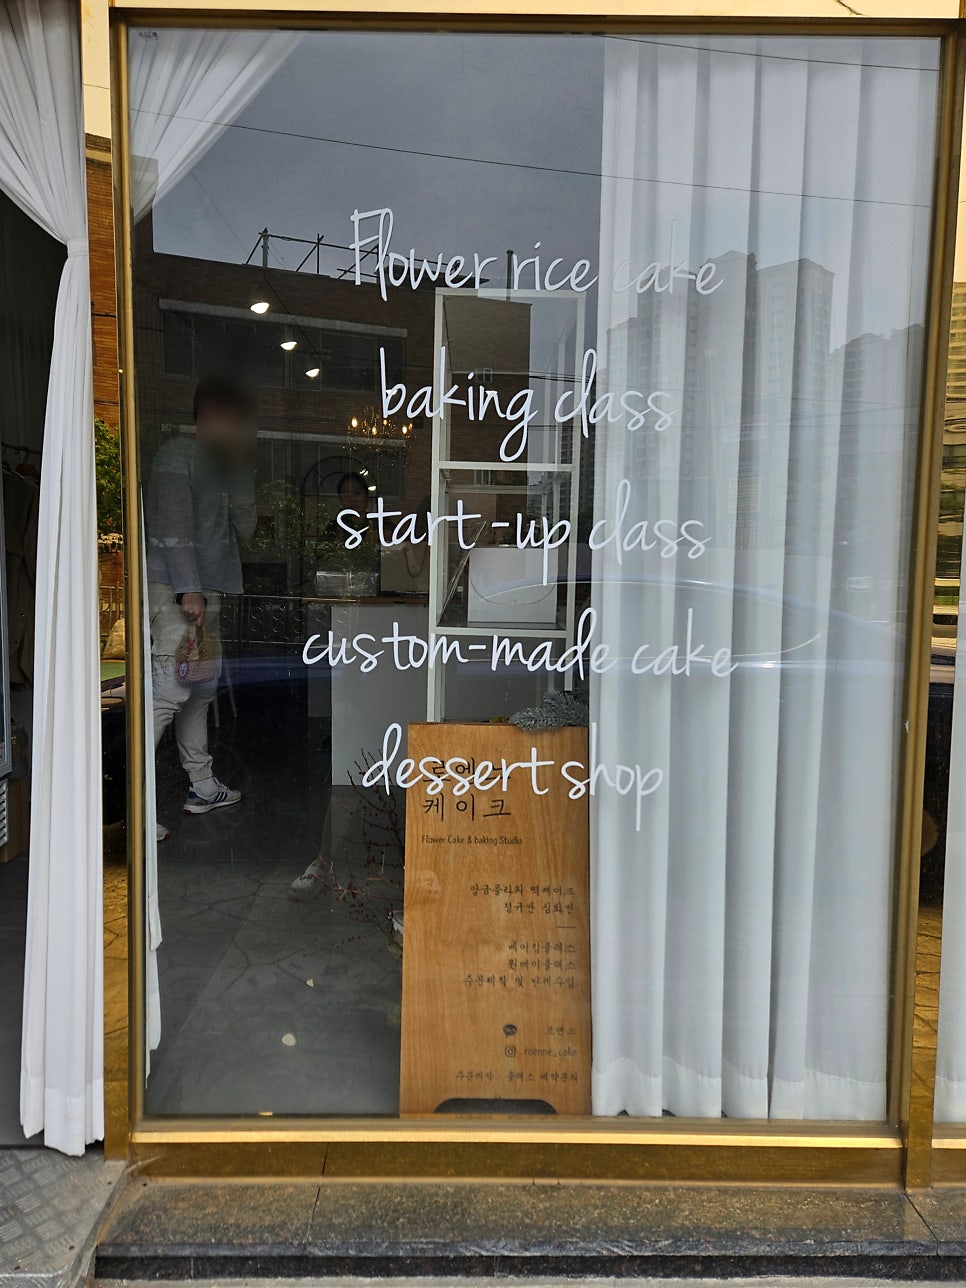 Flower rice cake
baking class
start-up class
custom-made cake
dessert shop
케이크
Flower Cake & baking Studio
앙금플라워 떡케이크
정규반 심화반
베이킹클래스
원데이클래스
주문제작 및 단체수업
roenne_cake
주문제작 · 클래스 예약문의